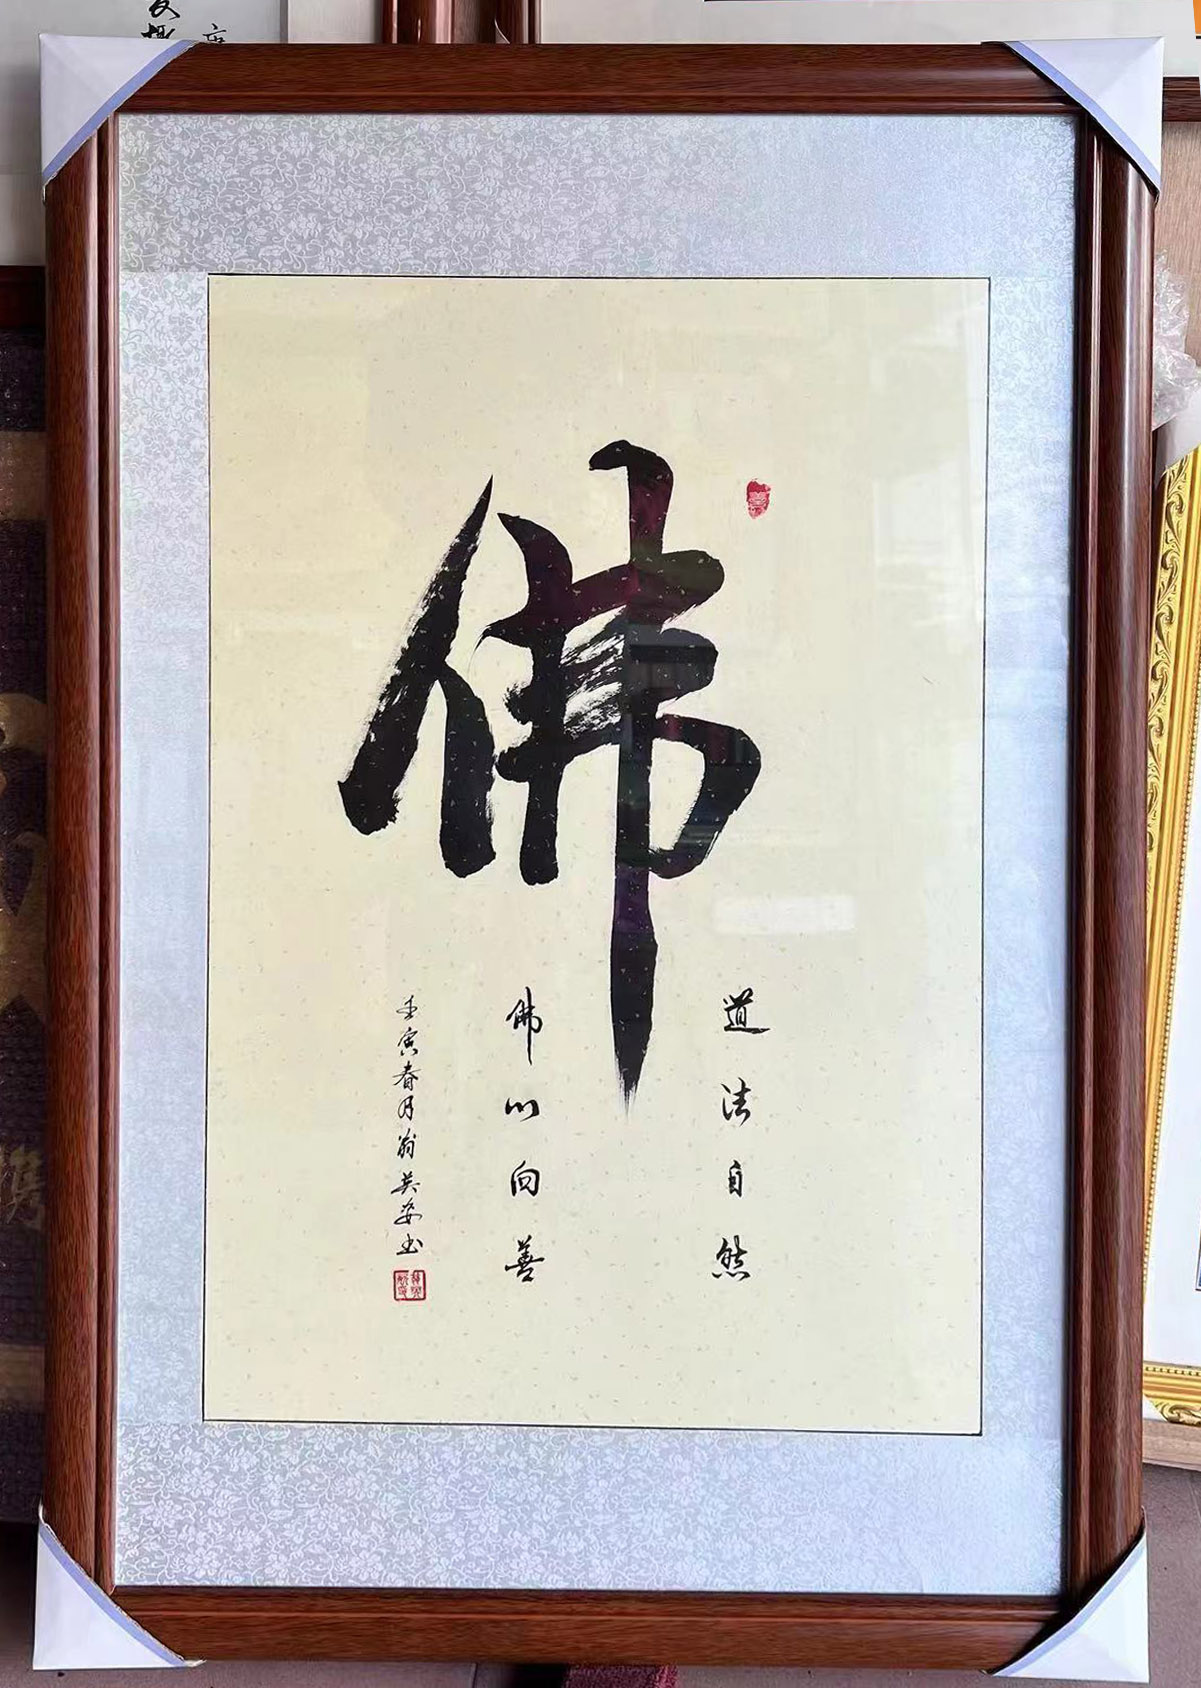 佛
道法自然
佛心向善
壬寅春月翁英安书